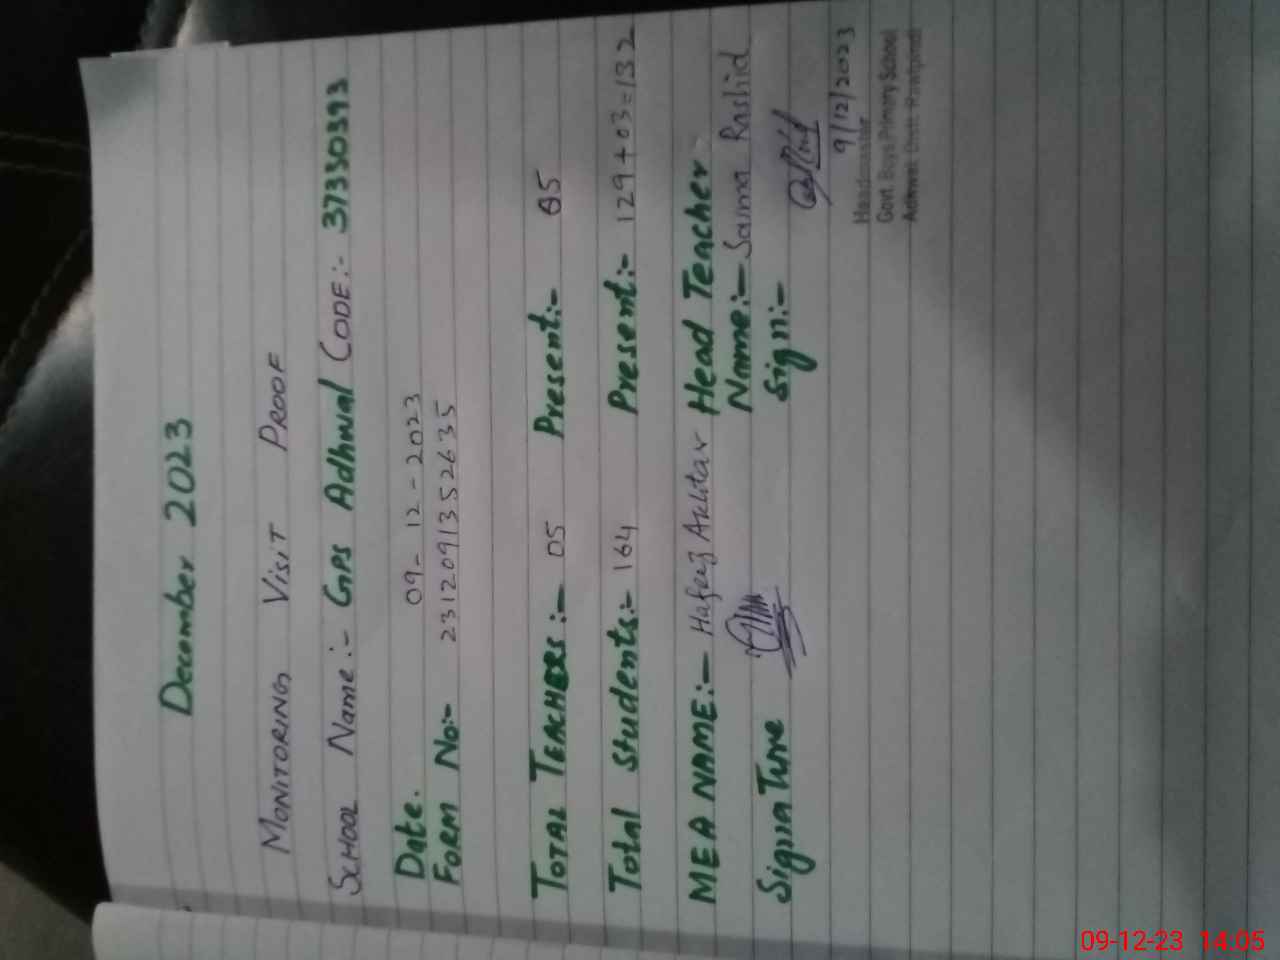 December 2023
MONITORING VISIT PROOF
SCHOOL Name:- GPS Adhwal CODE:- 37350393
Date. 09-12-2023
FORM No:- 231209135 2635
TOTAL TEACHERS:- 05 Present:- 05
Total Students:- 164 Present:- 129+03=132
MEA NAME:- Hafeez Akhtar Head Teacher
Name:- Saima Rashid
Signature Sign:-
9/12/2023
Headmaster
Govt. Boys Primary School
Adhwal Distt. Rawalpindi
09-12-23 14:05